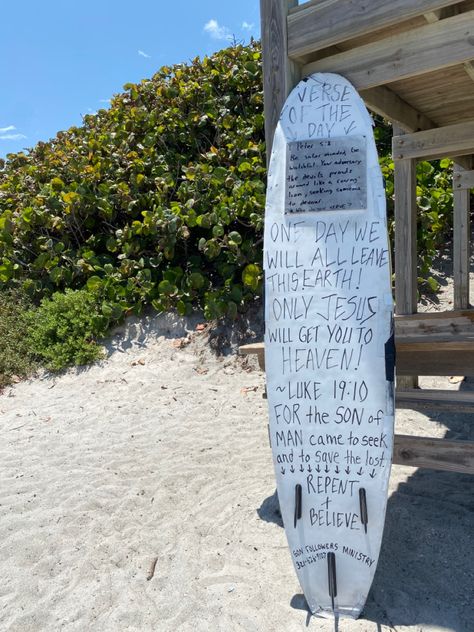 VERSE
OF THE
DAY ↓
1 Peter 5:8
Be sober minded, be
watchful. Your adversary
the devil prowls
around like a roaring
lion, seeking someone
to devour
ONE DAY WE
WILL ALL LEAVE
THIS EARTH!
ONLY JESUS
WILL GET YOU TO
HEAVEN!
~LUKE 19:10
FOR the SON of
MAN came to seek
and to save the lost.
↓↓↓↓↓↓↓↓↓
REPENT
+
BELIEVE
SON FOLLOWERS MINISTRY